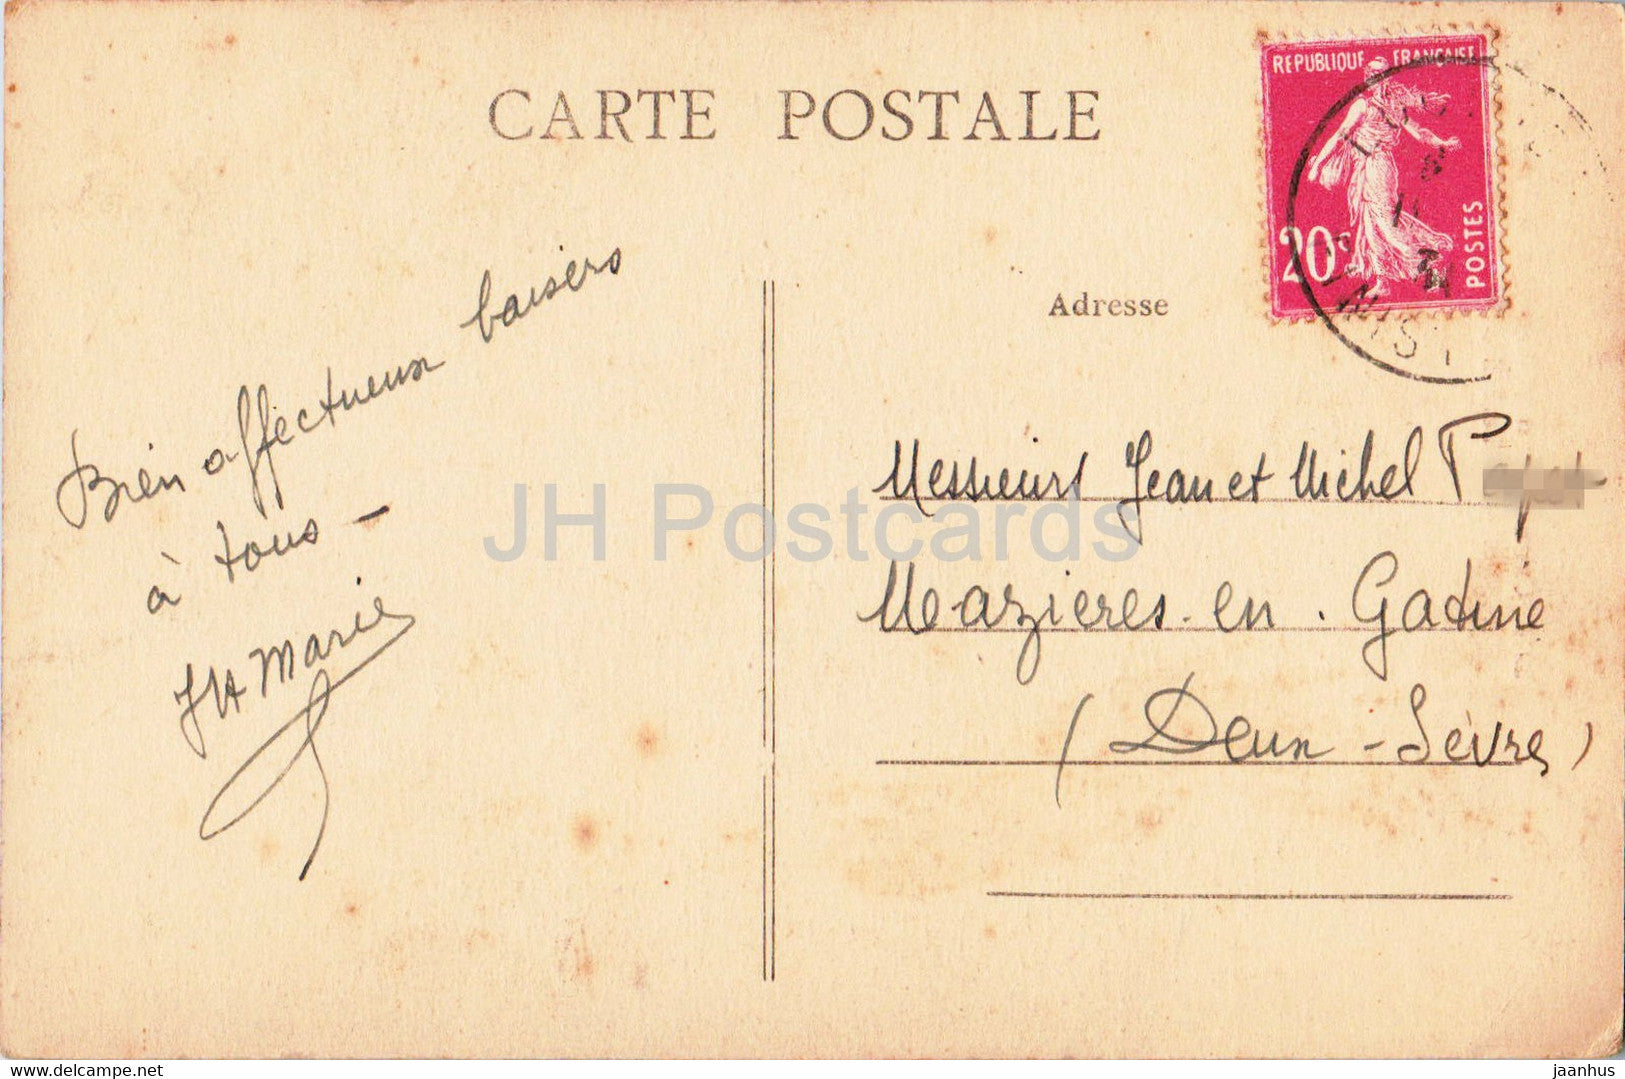 CARTE POSTALE
REPUBLIQUE FRANÇAISE
20c
POSTES
FINIST
Adresse
Bien affectueux baisers
à tous -
JH Marie
Messieurs Jean et Michel
Mazieres. en. Gatine
(Deux-Sèvres)
JH Postcards
www.delcampe.net
jaanhus